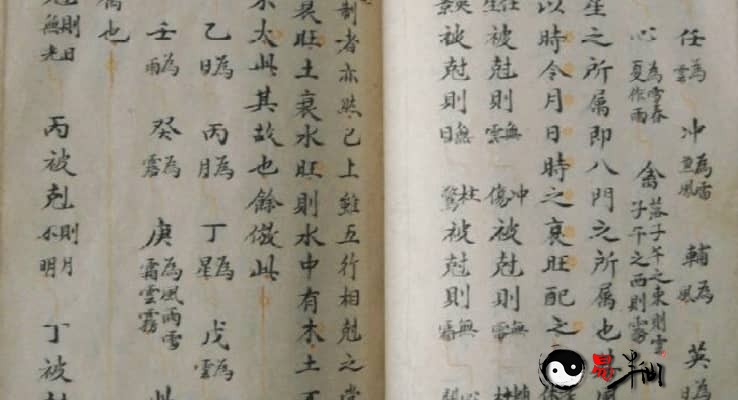 任為雲 冲為雷並風 輔為風 英為日
心為雪春夏作雨 禽落子午之東則雪子午之西則霧
星之所属即八門之所属也
以時令月日時之衰旺配之
任生被尅則無雲 冲傷被尅則無
景英被尅則無日 杜驚被尅則無
制者亦然已上雖五行相剋之常
衰旺土衰水旺則水中有木土
木太此其故也餘倣此
乙為日 丙為月 丁為星 戊為雲
壬為雨 癸為露 庚為風雨雪霜雲霧
属也
尅則日無光 丙被尅則月不明 丁被
易半仙